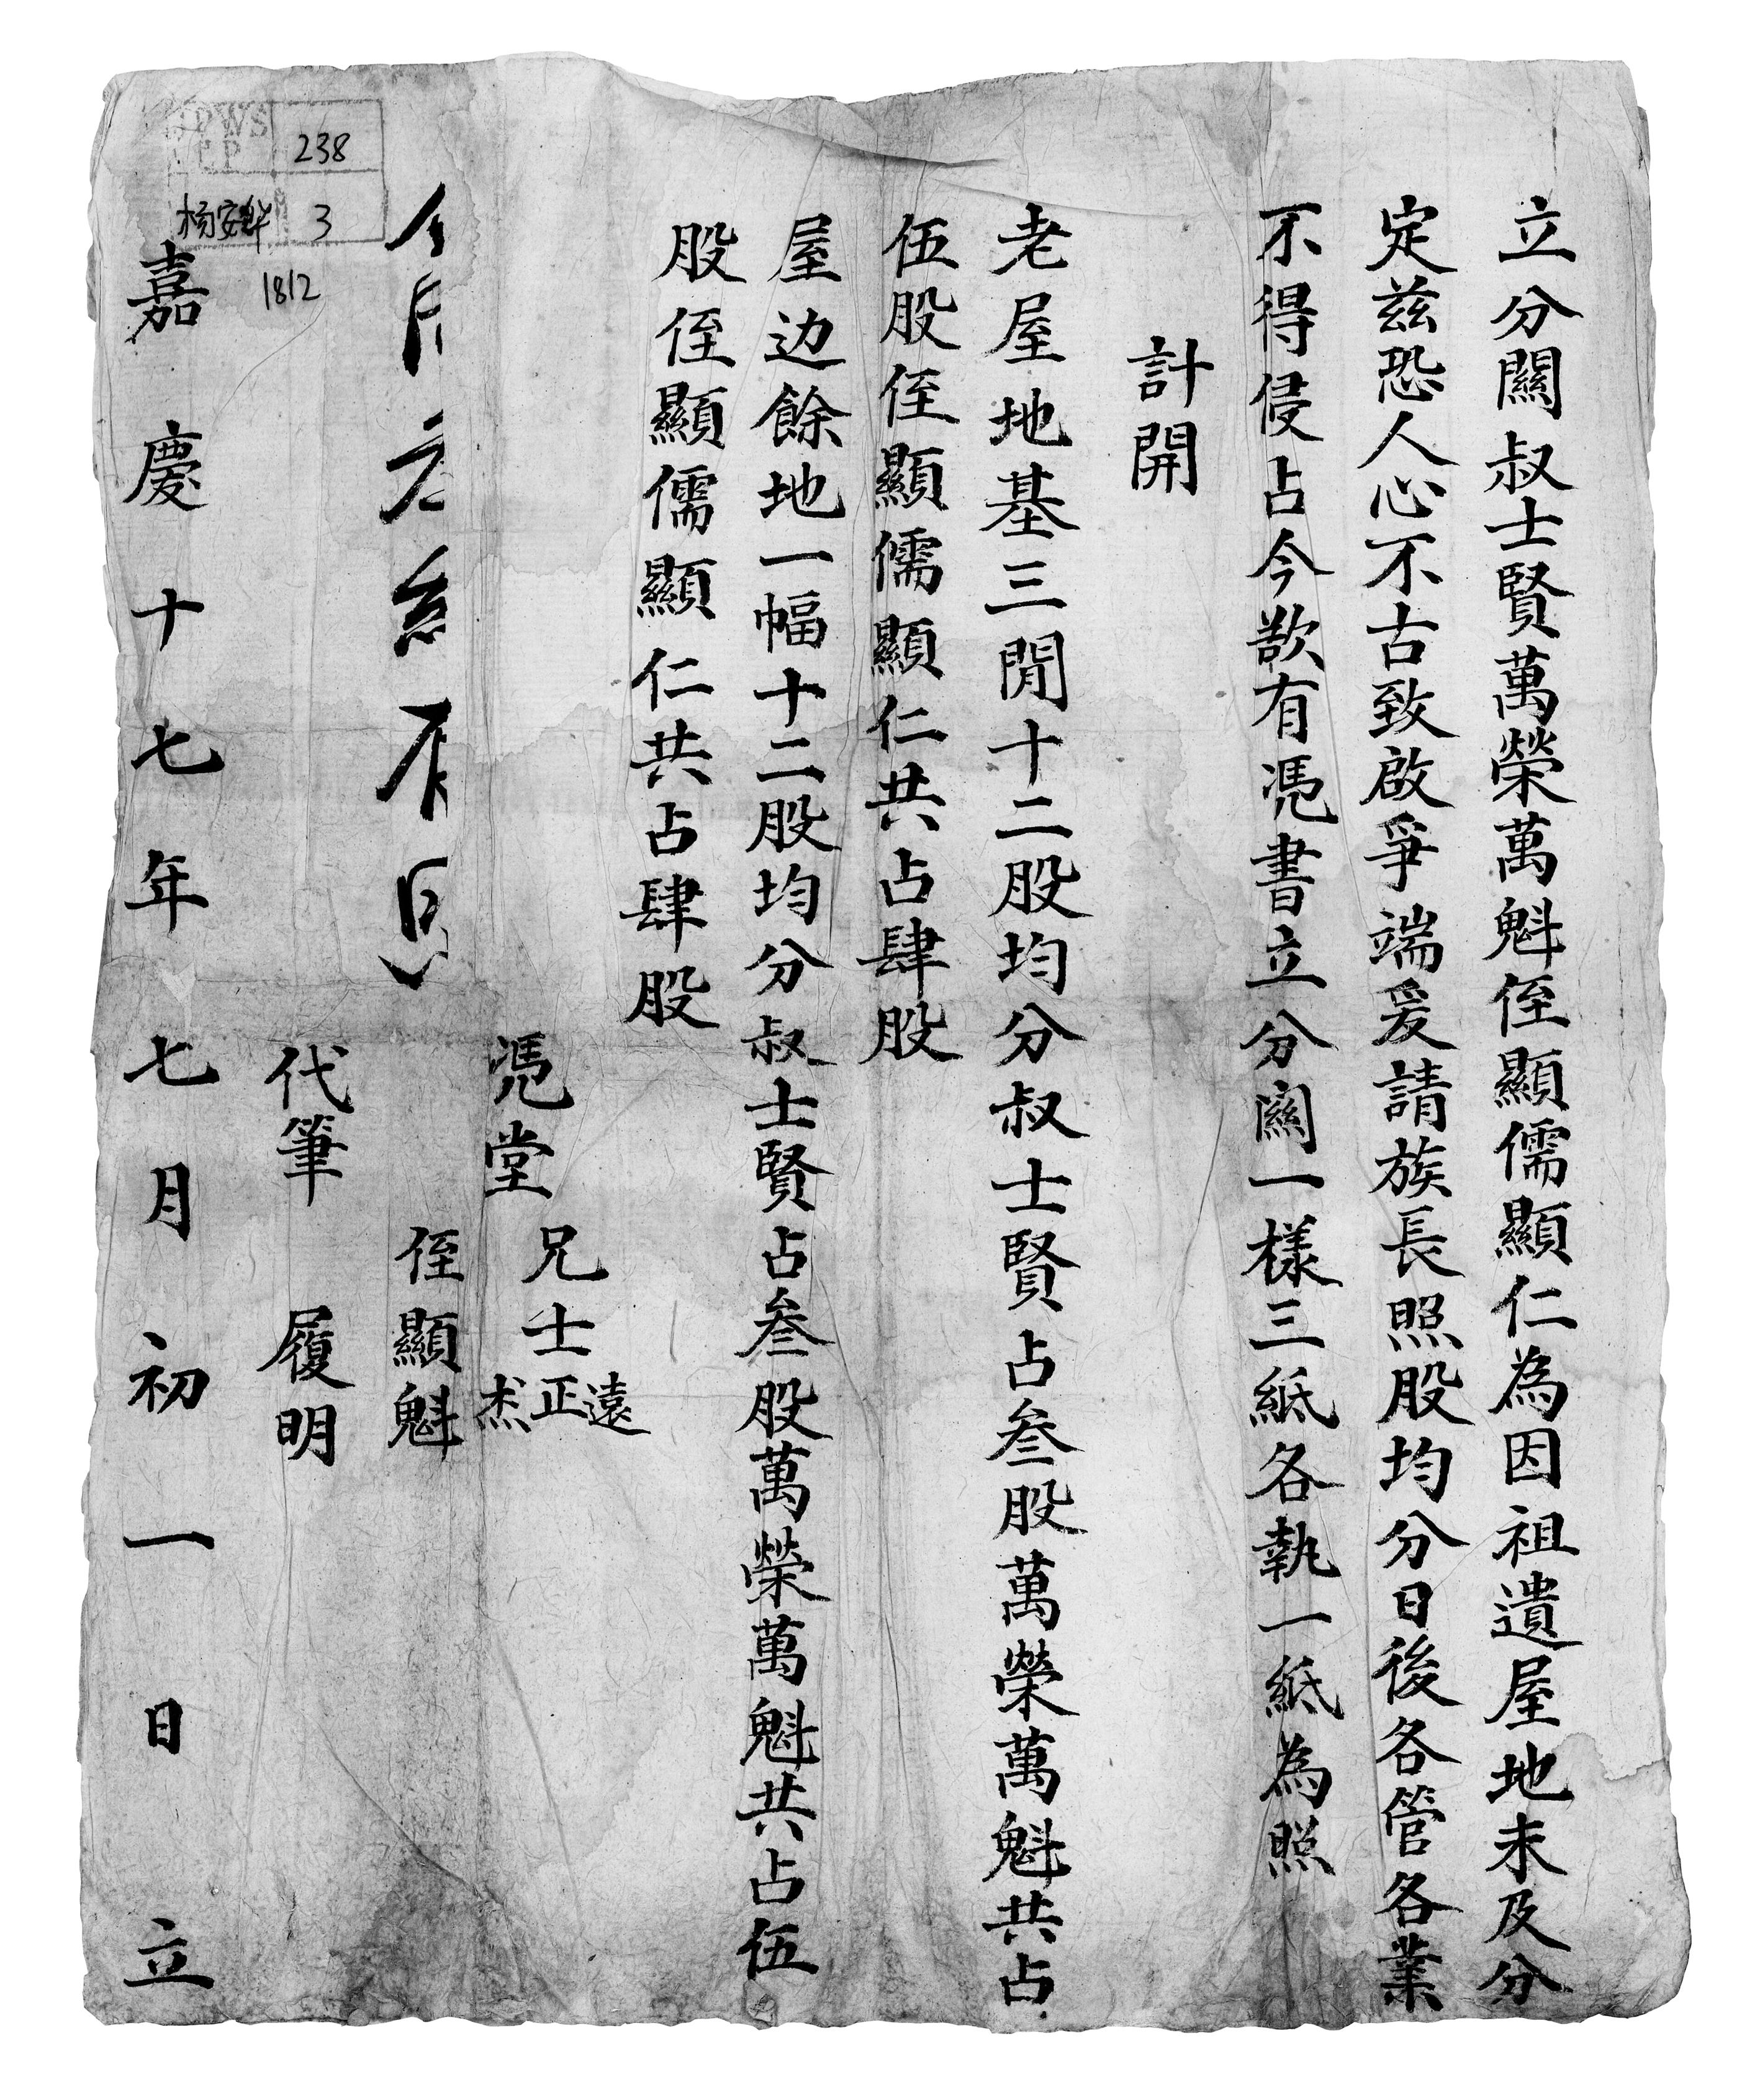 立分關叔士賢萬榮萬魁侄顯儒顯仁為因祖遺屋地未及分
定兹恐人心不古致啟爭端爰請族長照股均分日後各管各業
不得侵占今欲有憑書立分関一樣三紙各執一紙為照
計開
老屋地基三間十二股均分叔士賢占叁股萬榮萬魁共占
伍股侄顯儒顯仁共占肆股
屋边餘地一幅十二股均分叔士賢占叁股萬榮萬魁共占伍
股侄顯儒顯仁共占肆股
憑堂 兄士遠正杰
侄顯魁
代筆 履明
嘉慶十七年七月初一日立
238
3
1812